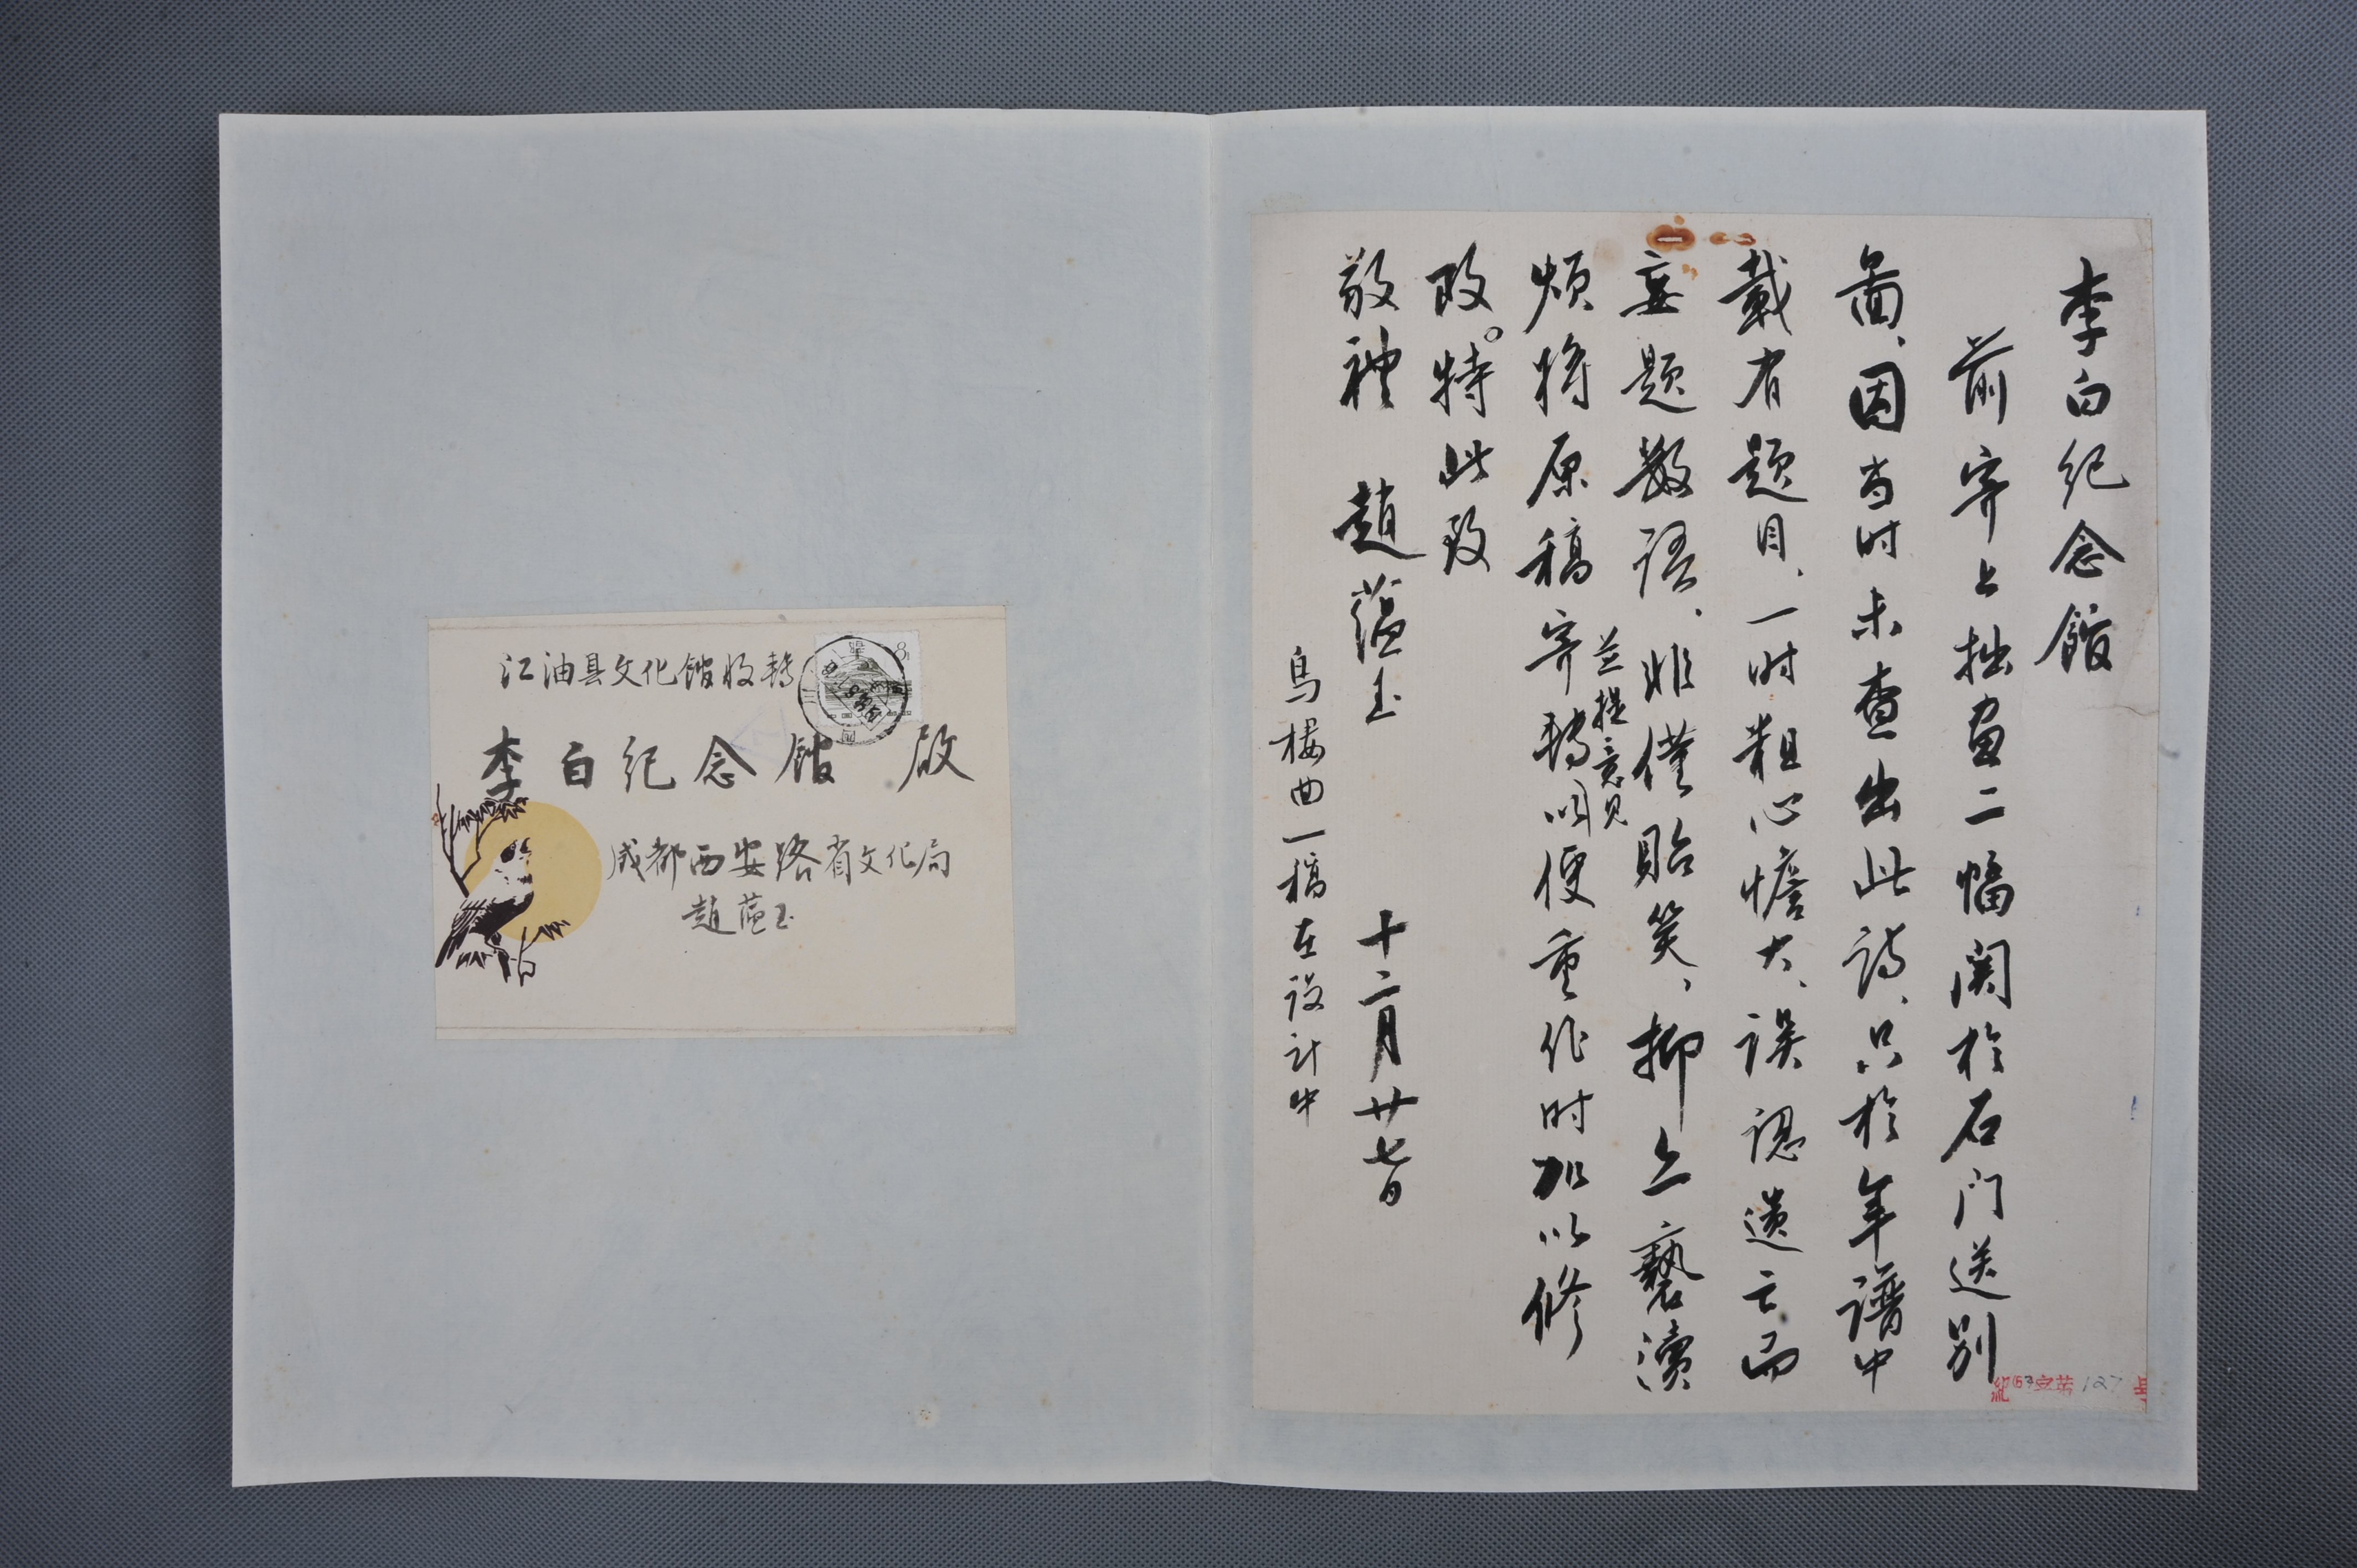 李白纪念館
前寄上拙画二幅関於石门送别
啚、因当时未查出此诗、只於年譜中
载有题目、一时粗心憺大、误認遗亡而
妄题数语、非僅貽笑、抑亦褻瀆
烦将原稿寄转
並提意见
以便重作时加以修
改。特此致
敬礼 趙蕴玉 十二月廿七日
烏棲曲一稿在设计中
纪 字第127号
江油县文化館收转
李白纪念館 啟
成都西安路省文化局
趙蕴玉
8